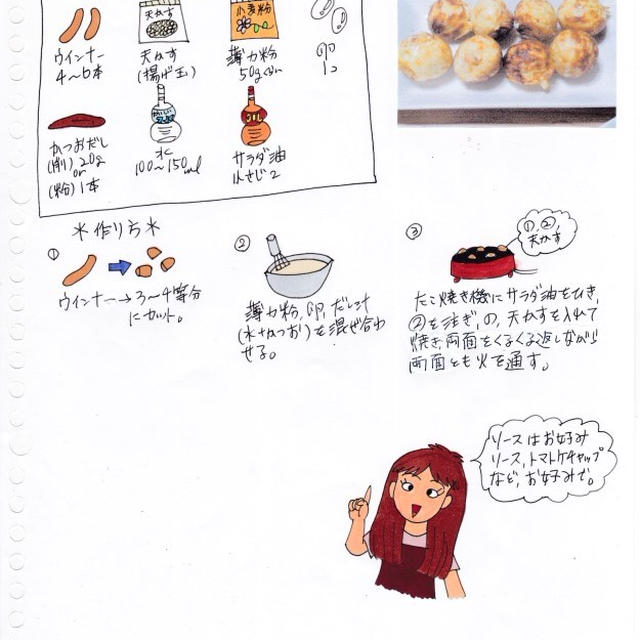 天かす
小麦粉
ウインナー
4〜6本
天かす
(揚げ玉)
薄力粉
50g
卵
1コ
OIL
かつおだし
(削)20g
or
(粉)1本
水
100〜150ml
サラダ油
小さじ2
*作り方*
①
ウインナー→3〜4等分
にカット。
②
薄力粉、卵、だし汁
(水+かつお)を混ぜ合わ
せる。
③
①,②,
天かす
たこ焼き機にサラダ油をひき、
②を注ぎ、①、天かすを入れて
焼き、両面をくるくる返しながら
両面とも火を通す。
ソースはお好み
ソース,トマトケチャップ
など、お好みで。